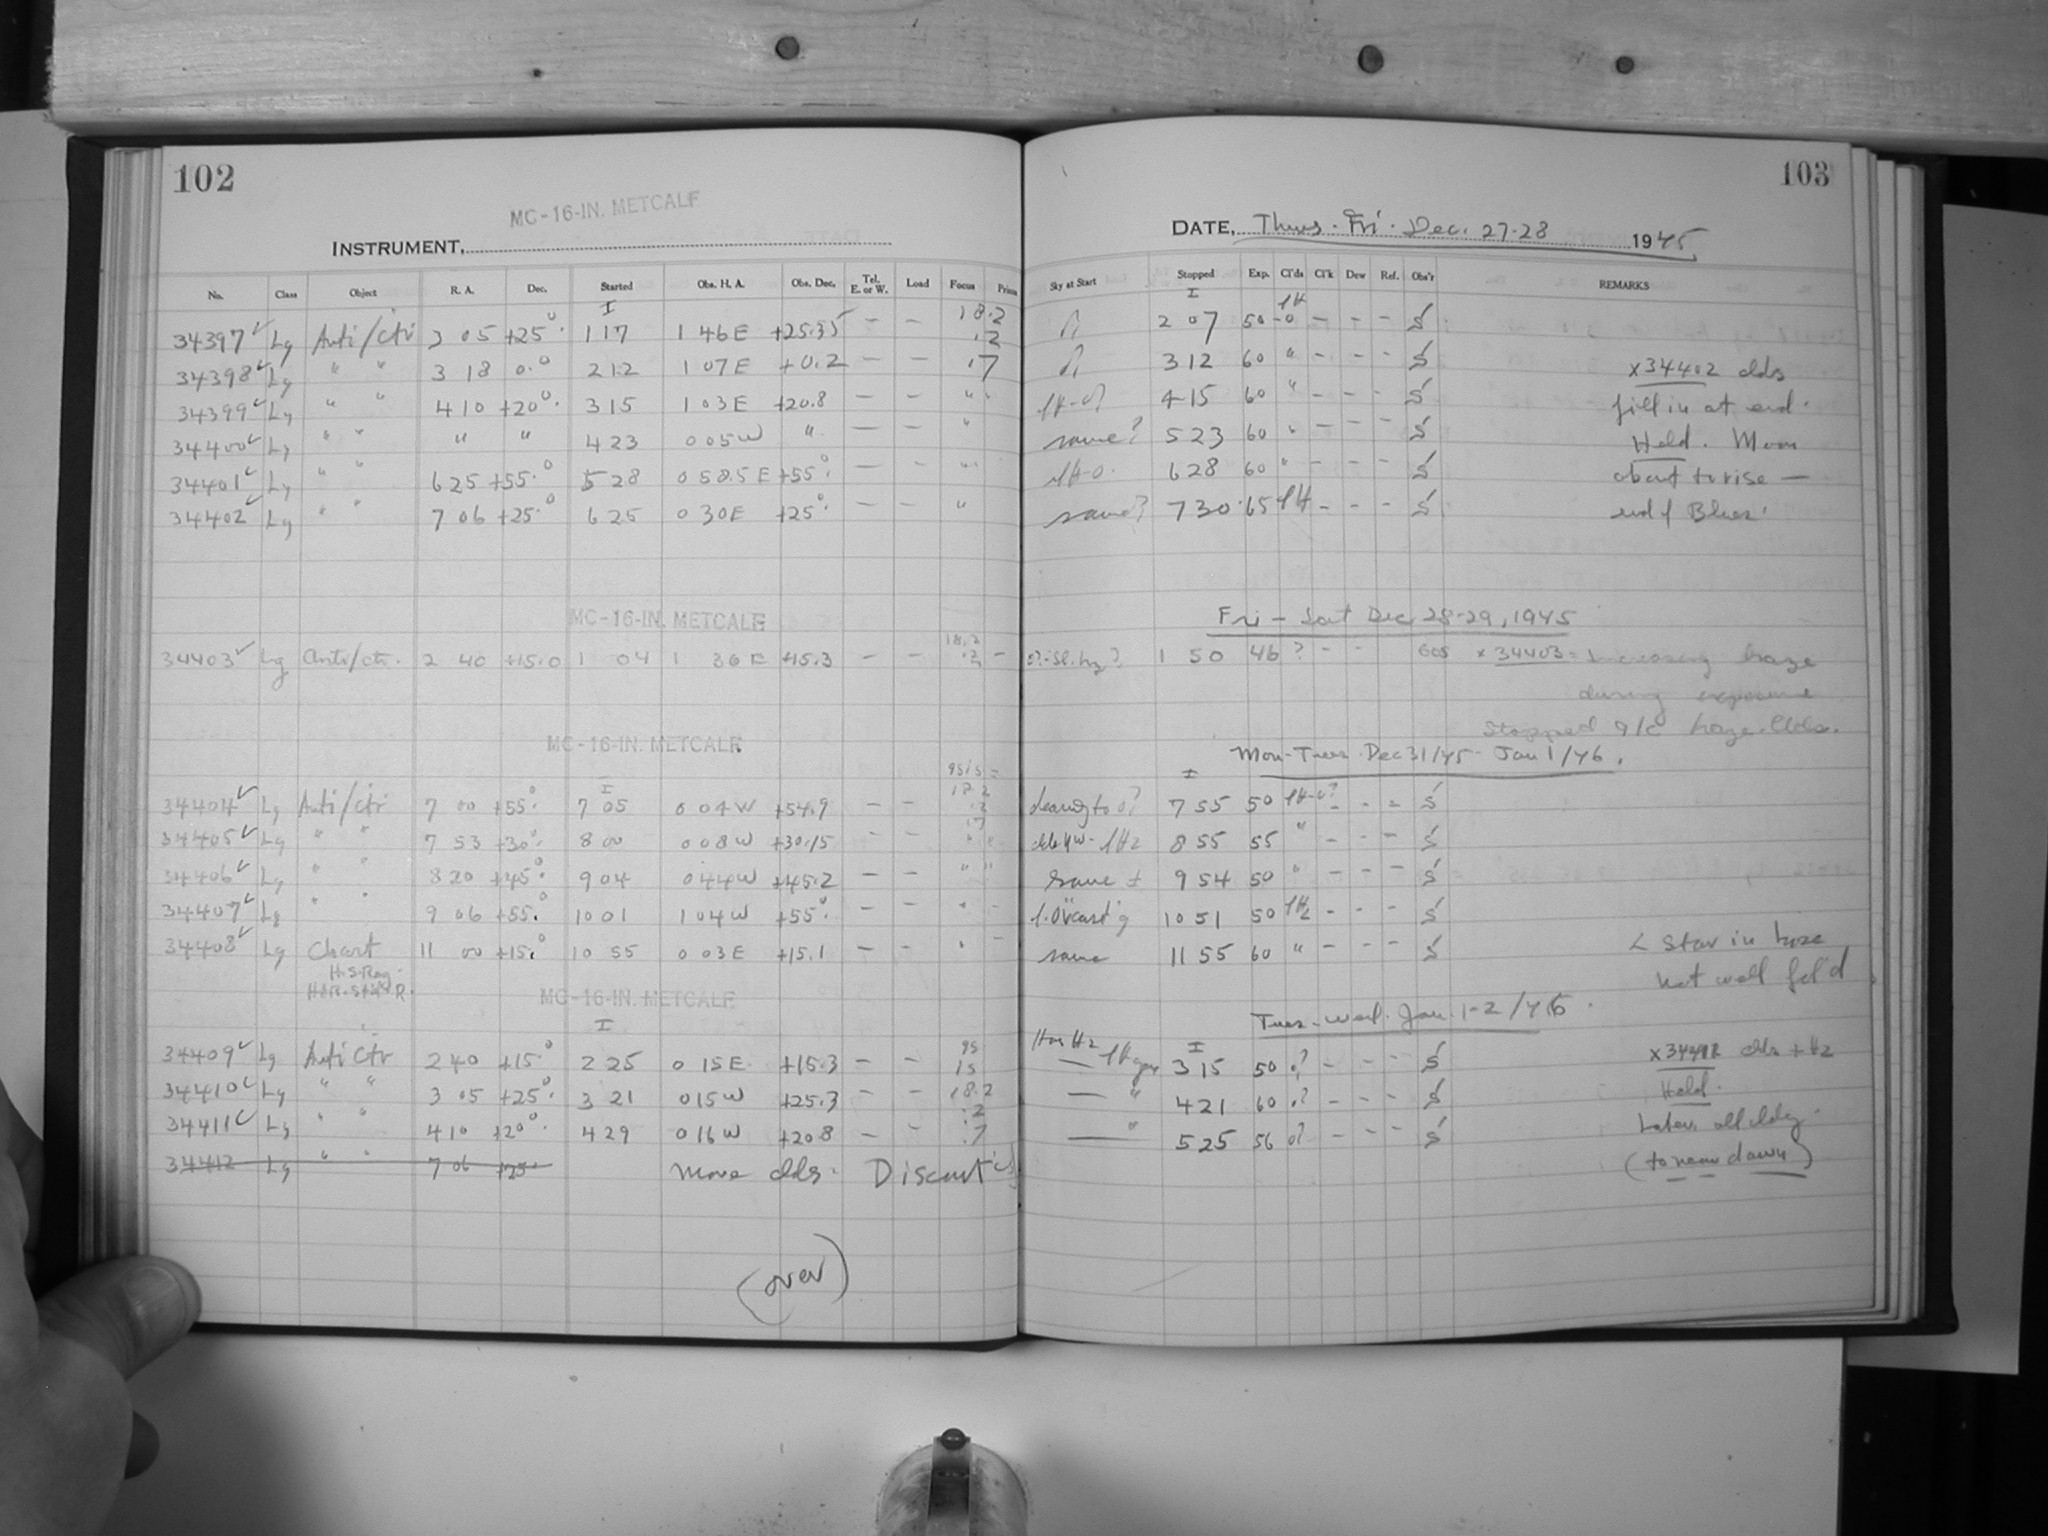 102
MC-16-IN. METCALF
INSTRUMENT,
No. Class Object R. A. Dec. Started Obs. H. A. Obs. Dec. Tel. E. or W. Load Focus
I 18.2
34397 ✓ Lg Anti/Ctr 3 05 +25°. 1 17 1 46 E +25.35 – – .2
34398 ✓ Lg " " 3 18 0.° 2 12 1 07 E +0.2 – – .7
34399 ✓ Lg " " 4 10 +20°. 3 15 1 03 E +20.8 – – "
34400 ✓ Lg " " " " 4 23 0 05 W " – – "
34401 ✓ Lg " " 6 25 +55.° 5 28 0 58.5 E +55.° – – "
34402 ✓ Lg " " 7 06 +25.° 6 25 0 30 E +25.° – – "
MC-16-IN. METCALF
18.2
34403 ✓ Lg Anti/ctr. 2 40 +15.0 1 04 1 36 E +15.3 – – .2
MC-16-IN. METCALF
I 18.2
34404 ✓ Lg Anti/ctr 7 00 +55.° 7 05 0 04 W +54.9 – – .2
34405 ✓ Lg " " 7 53 +30.° 8 00 0 08 W +30.15 – – "
34406 ✓ Lg " " 8 20 +45.° 9 04 0 44 W +45.2 – – " "
34407 ✓ Lg " " 9 06 +55.° 10 01 1 04 W +55.° – – " –
34408 ✓ Lg Chart 11 00 +15.° 10 55 0 03 E +15.1 – – " –
MC-16-IN. METCALF
I
34409 ✓ Lg Anti Ctr 2 40 +15.° 2 25 0 15 E +15.3 – –
34410 ✓ Lg " " 3 05 +25.° 3 21 0 15 W +25.3 – – 18.2
34411 ✓ Lg " " 4 10 +20.° 4 29 0 16 W +20.8 – – .7
34412 Lg " " 7 06 +25° More clds. Discont'd
(over)
103
DATE, Thurs. Fri. Dec. 27-28 1945
Sky at Start Stopped Exp. Cl'ds Cl'k Dew Ref. Obs'r REMARKS
I
2 07 50 – – – S
3 12 60 " – – – S x34402 clds
4 15 60 " – – – S fill in at end.
same? 5 23 60 " – – – S Held. Moon
6 28 60 " – – – S about to rise —
same? 7 30 65 – – – S end of Blues.
Fri – Sat Dec 28-29, 1945
1 50 46 ? – – x 34403 = Increasing haze
during exposure
Stopped a/c haze-Clds.
Mon-Tues. Dec 31/45 - Jan 1/46.
I
7 55 50 – – – S
8 55 55 " – – – S
same ± 9 54 50 " – – – S
10 51 50 – – – S
same 11 55 60 " – – – S < Star in haze
not well fol'd
Tues-Wed. Jan. 1-2/46.
I
3 15 50 .? – – – S x34412 clds + Hz
— " 4 21 60 .? – – – S Held.
— " 5 25 56 0? – – – S Later all cldy.
(to near dawn)